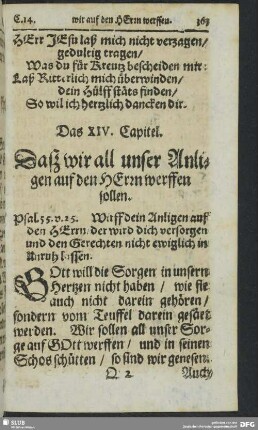 C.14. wir auf den HErrn werffen. 363
HErr JEsu laß mich nicht verzagen/
gedultig tragen/
Was du für Kreutz bescheiden mir:
Laß Ritterlich mich überwinden/
dein Hülff stäts finden/
So wil ich hertzlich dancken dir.
Das XIV. Capitel.
Daß wir all unser Anli-
gen auf den HErrn werffen
sollen.
Psal. 55. v. 25. Wuff dein Anligen auf
den HErrn/ der wird dich versorgen
und den Gerechten nicht ewiglich in
Unruh lassen.
GOtt will die Sorgen in unserm
Hertzen nicht haben/ wie sie
auch nicht darein gehören/
sondern vom Teuffel darein gesäet
werden. Wir sollen all unser Sor-
ge auf GOtt werffen/ und in seinen
Schos schütten/ so sind wir genesen.
Q 2 Auch
SLUB
DFG